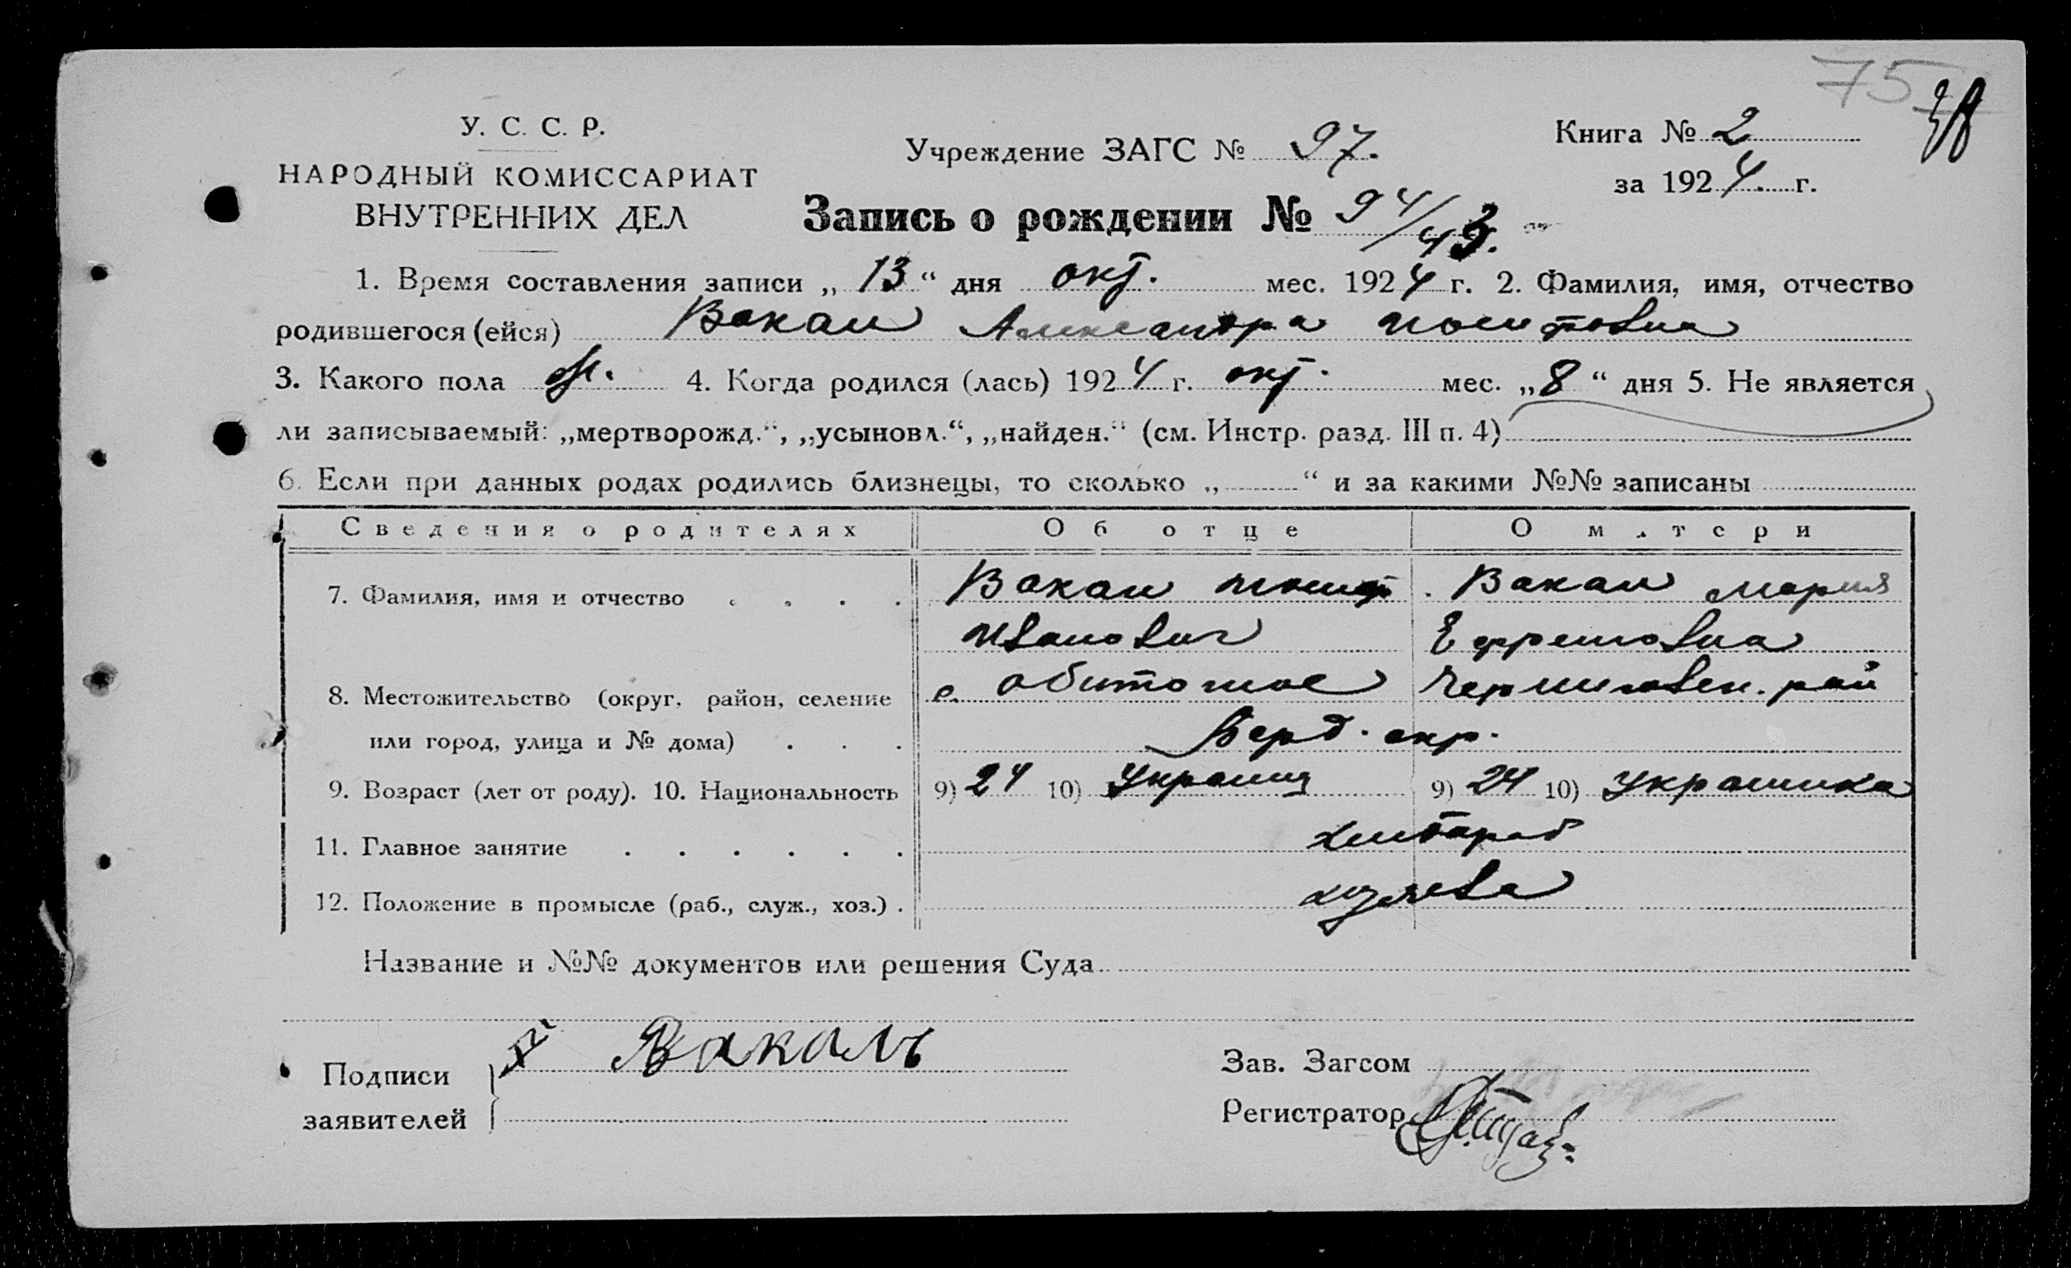 75
38
У. С. С. Р.
НАРОДНЫЙ КОМИССАРИАТ
ВНУТРЕННИХ ДЕЛ
Учреждение ЗАГС № 97.
Книга № 2
за 1924 г.
Запись о рождении № 94/43.
1. Время составления записи „13“ дня окт. мес. 1924 г. 2. Фамилия, имя, отчество
родившегося (ейся) Вакал Александра
3. Какого пола 4. Когда родился (лась) 1924 г. окт. мес. „8“ дня 5. Не является
ли записываемый: „мертворожд.“, „усыновл.“, „найден.“ (см. Инстр. разд. III п. 4)
6. Если при данных родах родились близнецы, то сколько „ “ и за какими №№ записаны
Сведения о родителях Об отце О матери
7. Фамилия, имя и отчество . . . . Вакал Вакал Мария
Иванович Ефремовна
8. Местожительство (округ, район, селение с. Обиточное Черниговск. рай
или город, улица и № дома) . . . Берд. окр.
9. Возраст (лет от роду). 10. Национальность 9) 24 10) Украинц 9) 24 10) Украинка
11. Главное занятие . . . . . . хлебороб
12. Положение в промысле (раб., служ., хоз.) . хозяева
Название и №№ документов или решения Суда
Подписи
заявителей
Вакаль
Зав. Загсом
Регистратор